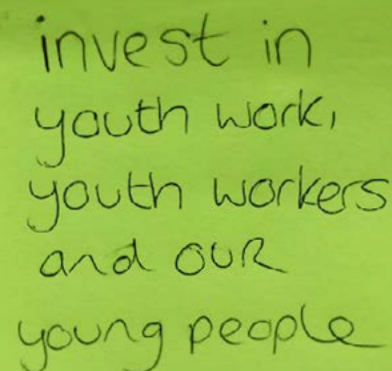 invest in
youth work,
youth workers
and OUR
young people